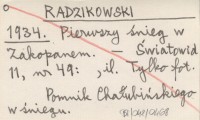 RADZIKOWSKI
1934. Pierwszy śnieg w
Zakopanem. – Światowid
11, nr 49: , il. Tylko fot.
Pomnik Chałubińskiego
w śniegu.